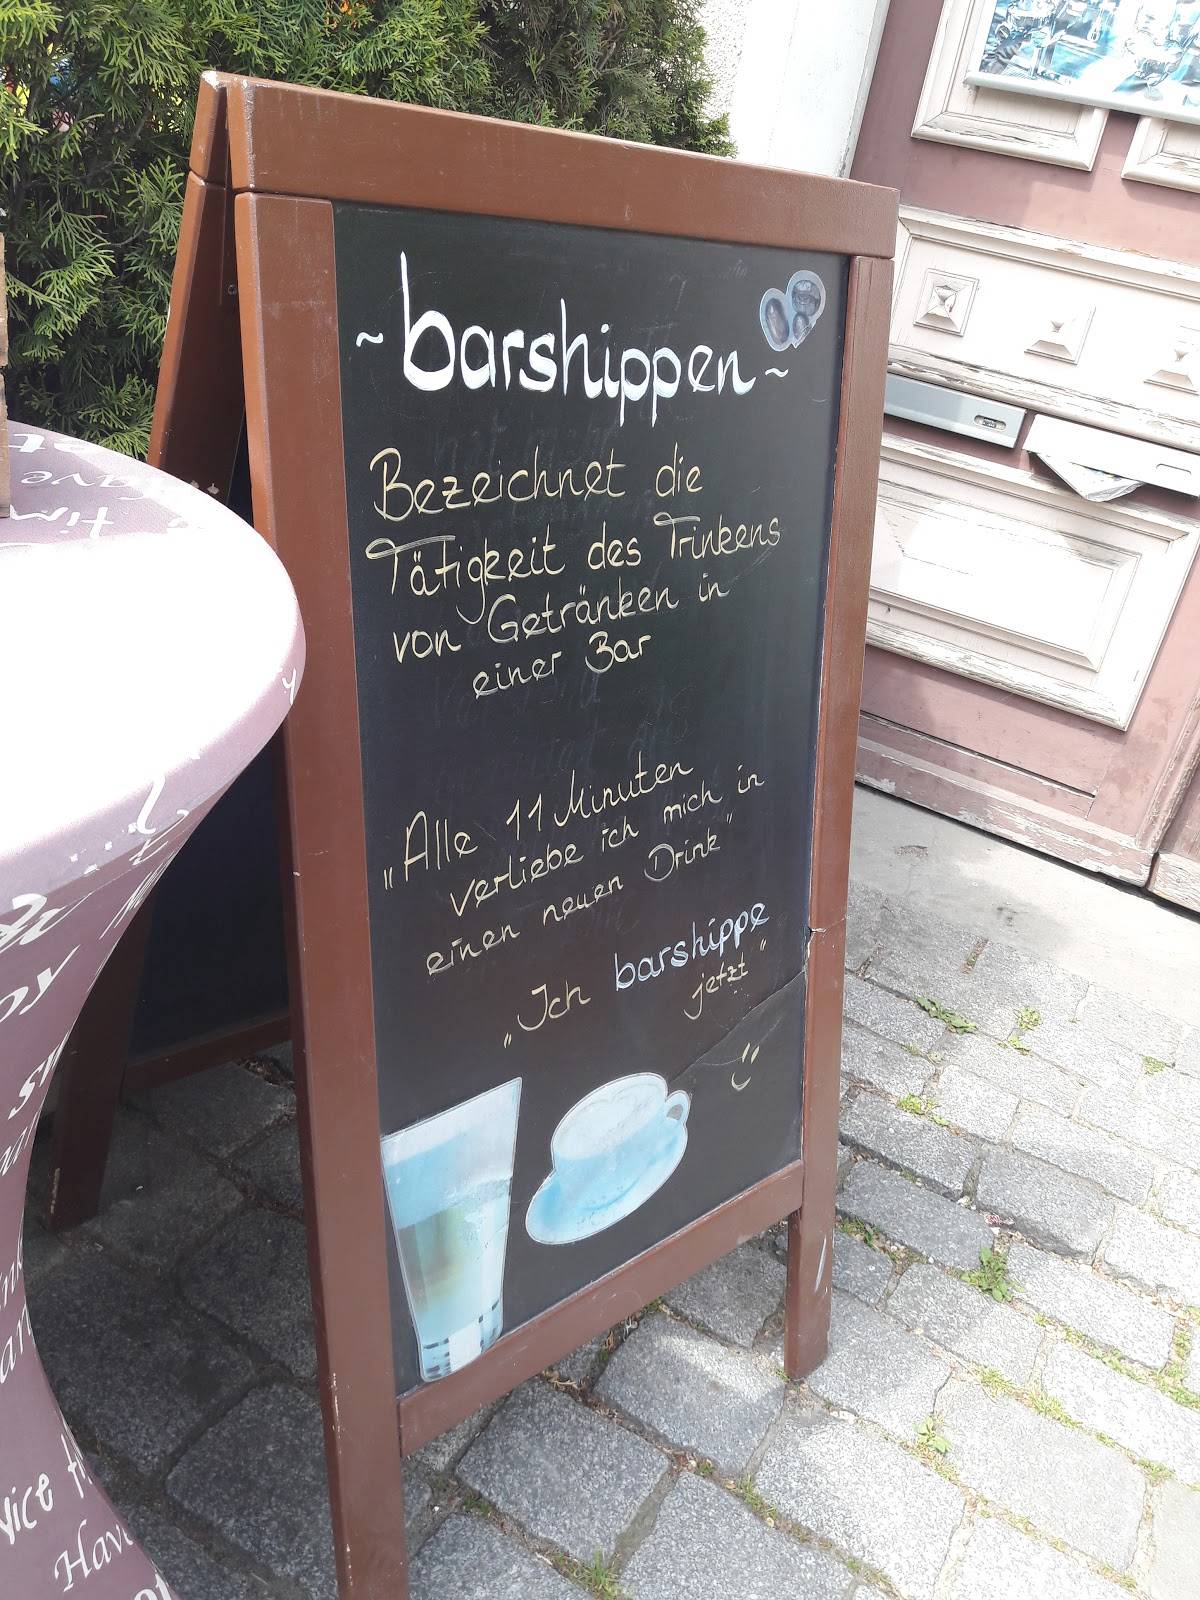 ~ barshippen ~
Bezeichnet die
Tätigkeit des Trinkens
von Getränken in
einer Bar
„Alle 11 Minuten
verliebe ich mich in
einen neuen Drink"
„Ich barshippe
jetzt"
Nice
Have